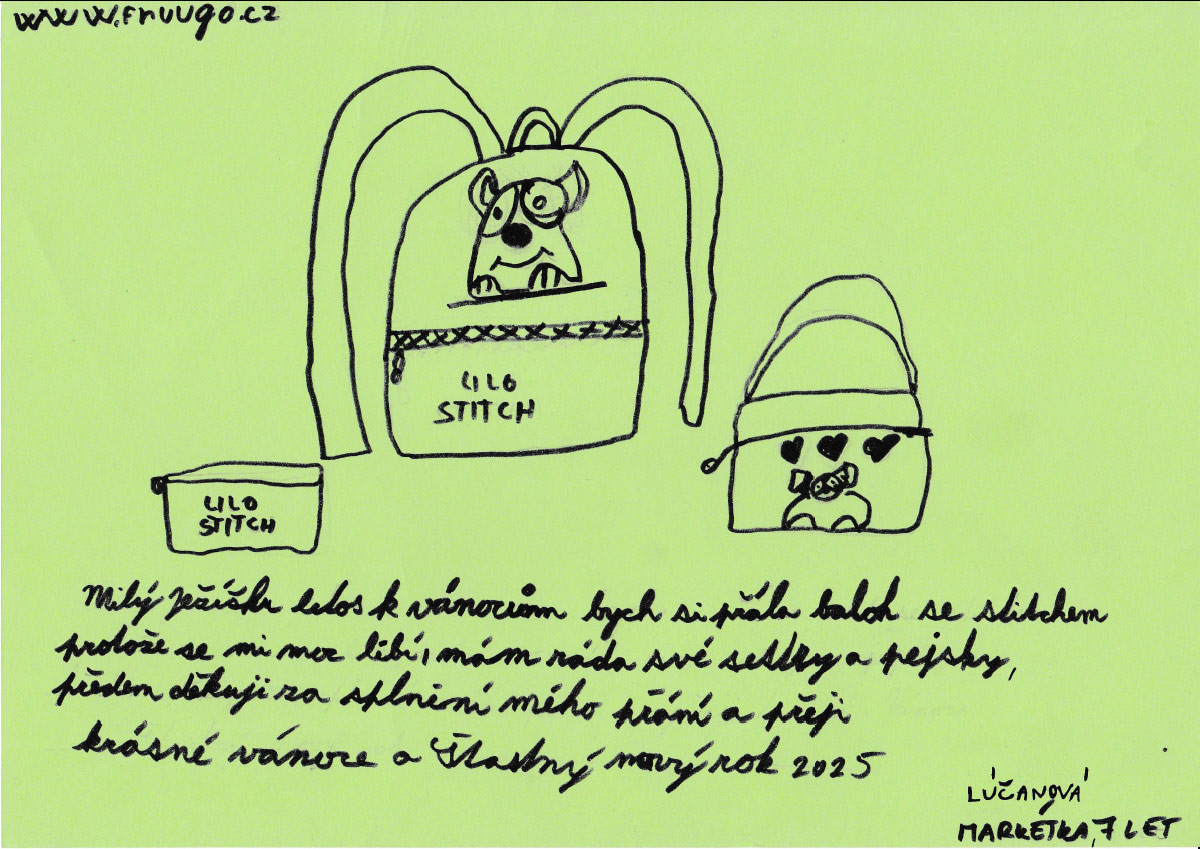 www.fnuugo.cz
LILO
STITCH
LILO
STITCH
Milý Ježíšku letos k vánocům bych si přála batoh se stitchem
protože se mi moc líbí, mám ráda své sestry a pejsky,
předem děkuji za splnění mého přání a přeji
krásné vánoce a Šťastný nový rok 2025
LÚČANOVÁ
MARKETKA, 7 LET